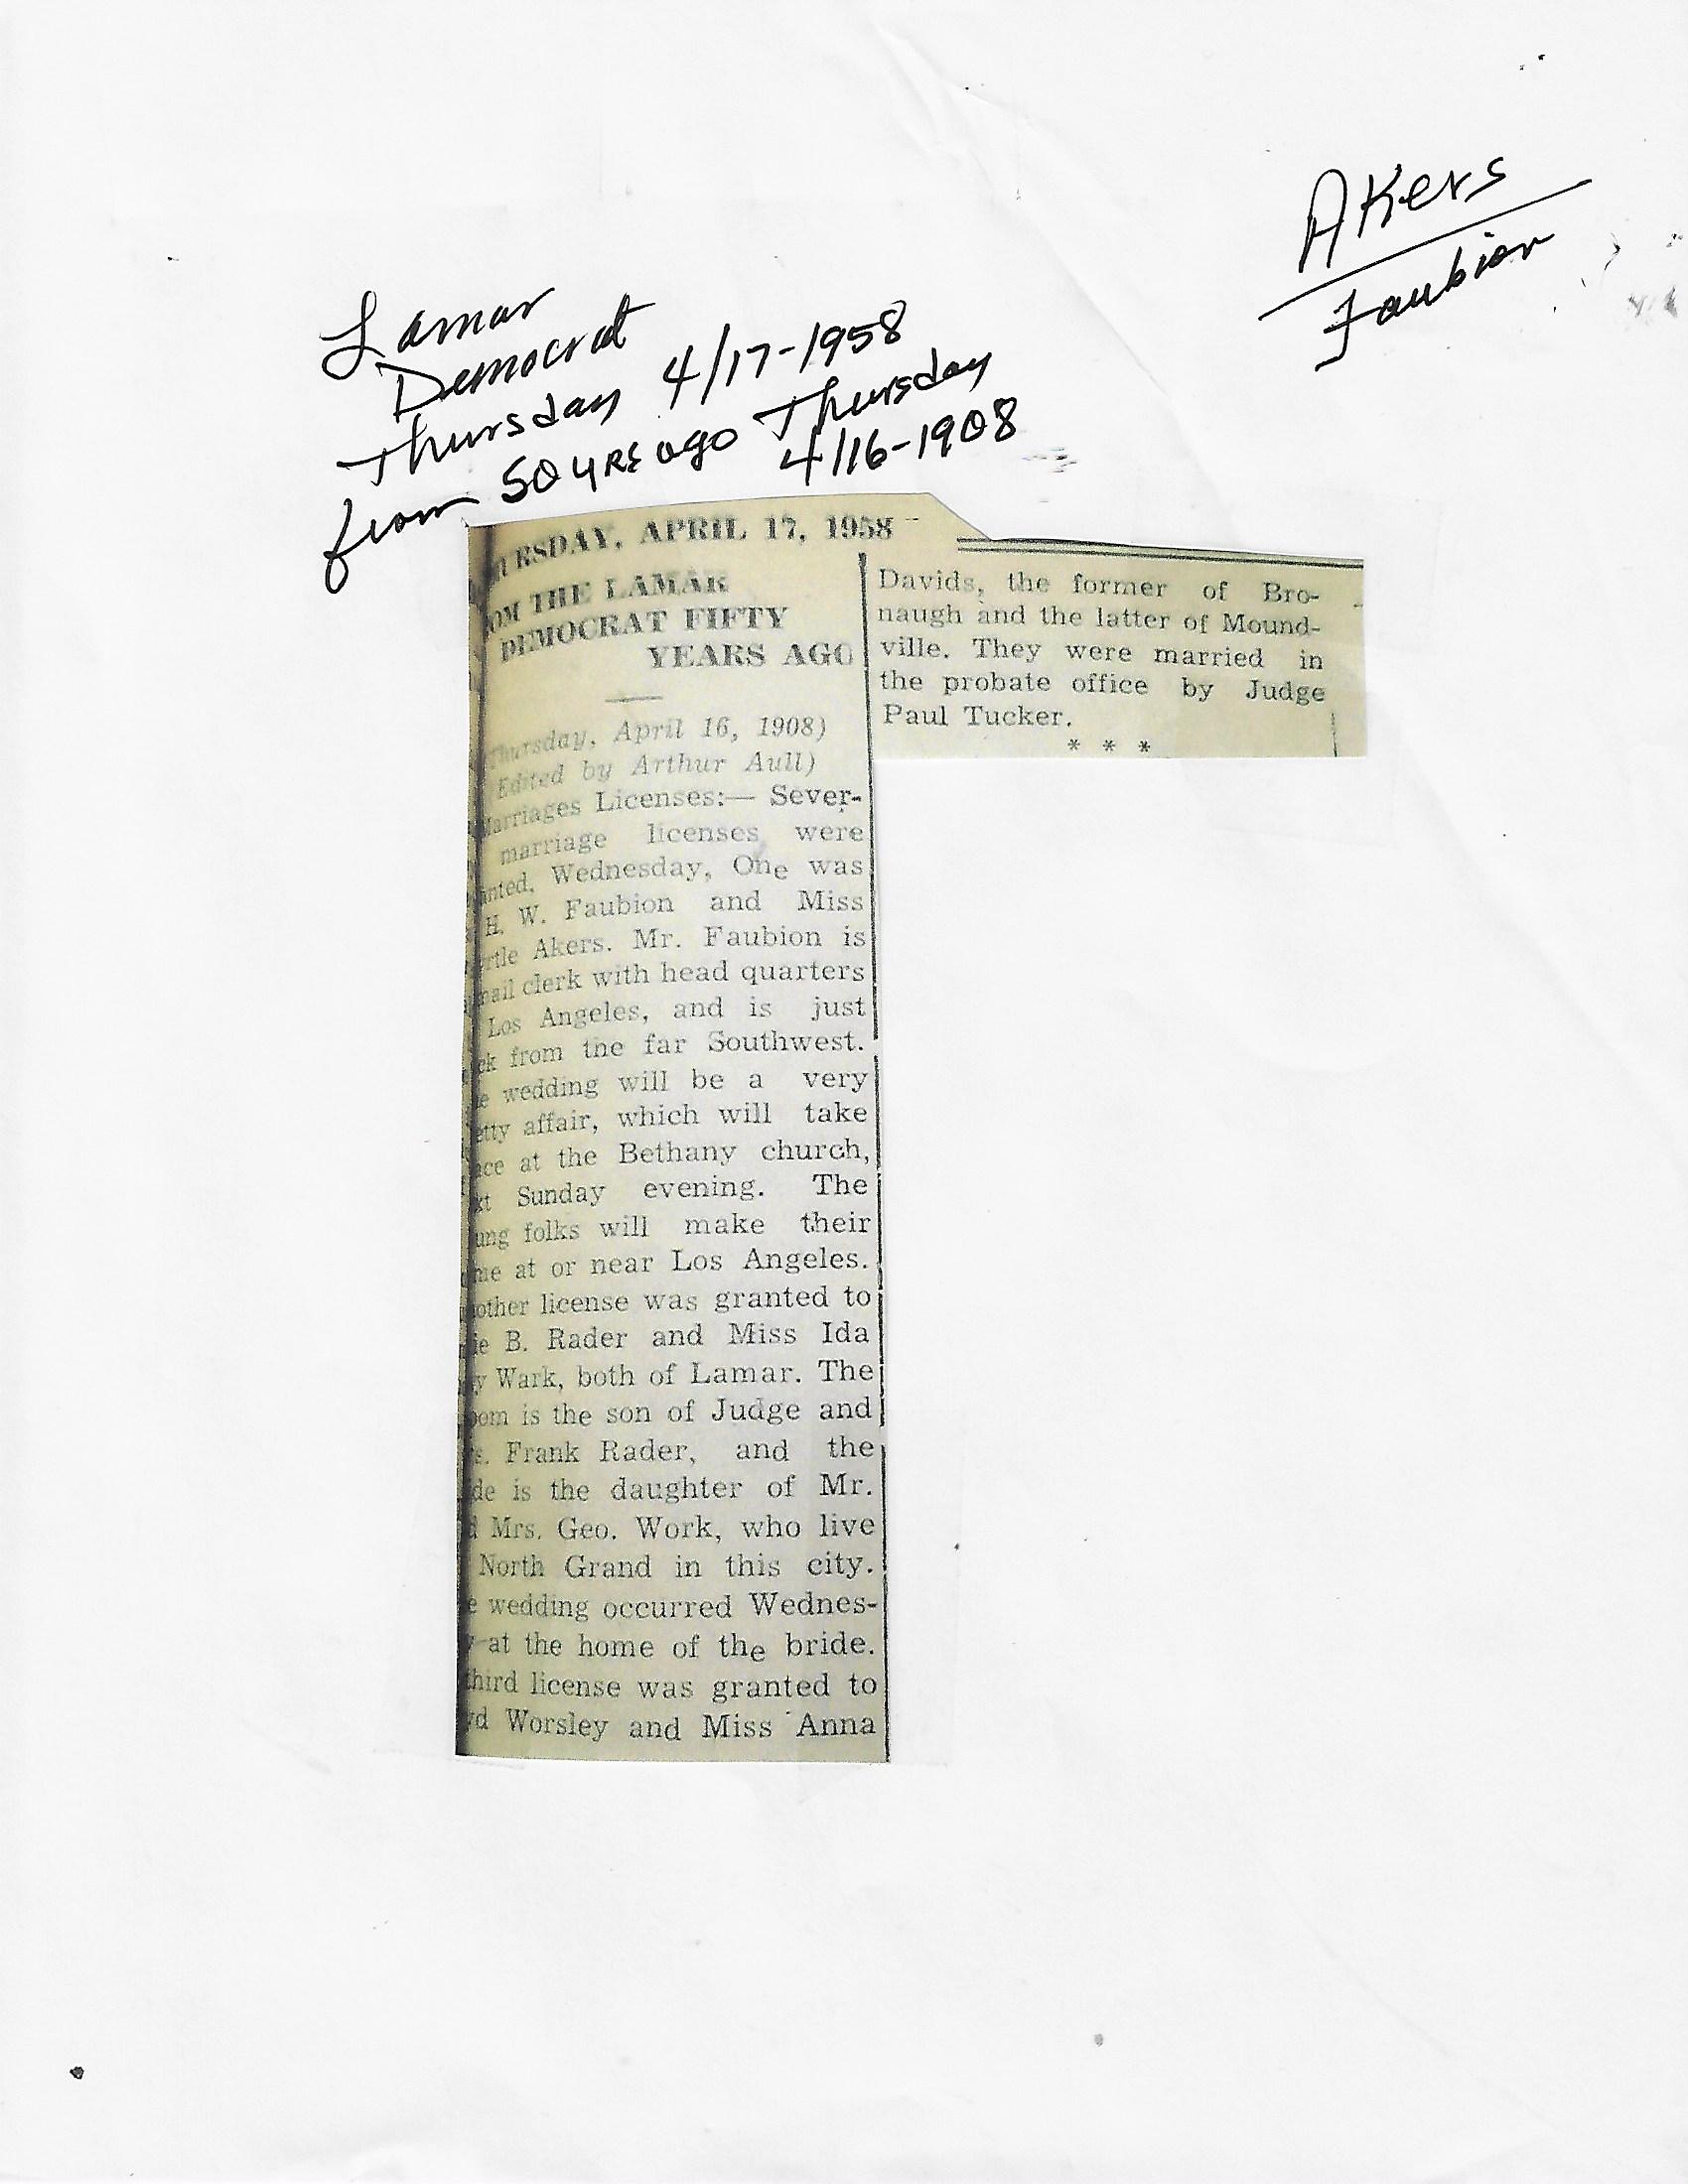 Akers
Faubion
Lamar
Democrat
Thursday 4/17-1958
from 50 yrs ago Thursday
4/16-1908
URSDAY, APRIL 17, 1958
OM THE LAMAR
DEMOCRAT FIFTY
YEARS AGO
Thursday, April 16, 1908)
Edited by Arthur Aull)
Marriages Licenses:— Sever-
marriage licenses were
anted. Wednesday, One was
H. W. Faubion and Miss
rtle Akers. Mr. Faubion is
mail clerk with head quarters
Los Angeles, and is just
ck from the far Southwest.
e wedding will be a very
etty affair, which will take
ace at the Bethany church,
xt Sunday evening. The
ung folks will make their
me at or near Los Angeles.
nother license was granted to
ie B. Rader and Miss Ida
y Wark, both of Lamar. The
oom is the son of Judge and
s. Frank Rader, and the
de is the daughter of Mr.
d Mrs. Geo. Work, who live
North Grand in this city.
e wedding occurred Wednes-
y at the home of the bride.
third license was granted to
yd Worsley and Miss Anna
Davids, the former of Bro-
naugh and the latter of Mound-
ville. They were married in
the probate office by Judge
Paul Tucker.
* * *